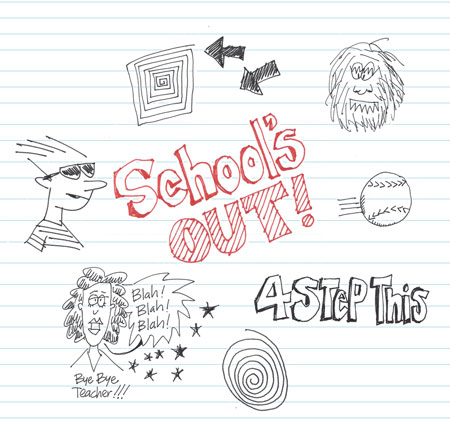 School's
OUT!
4 STEP This
Blah!
Blah!
Blah!
Bye Bye
Teacher!!!